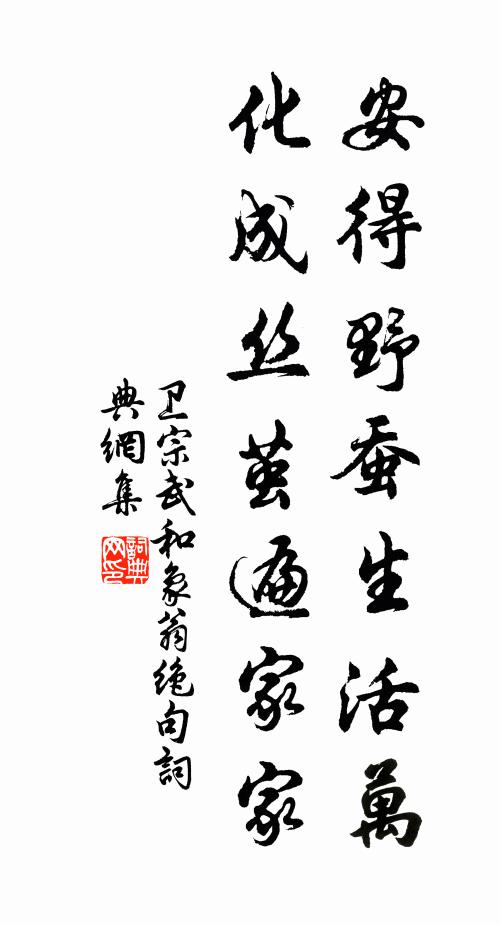 安得野蚕生活萬
化成丝茧遍家家
卫宗武和象翁绝句詞
典網集
詞典网印